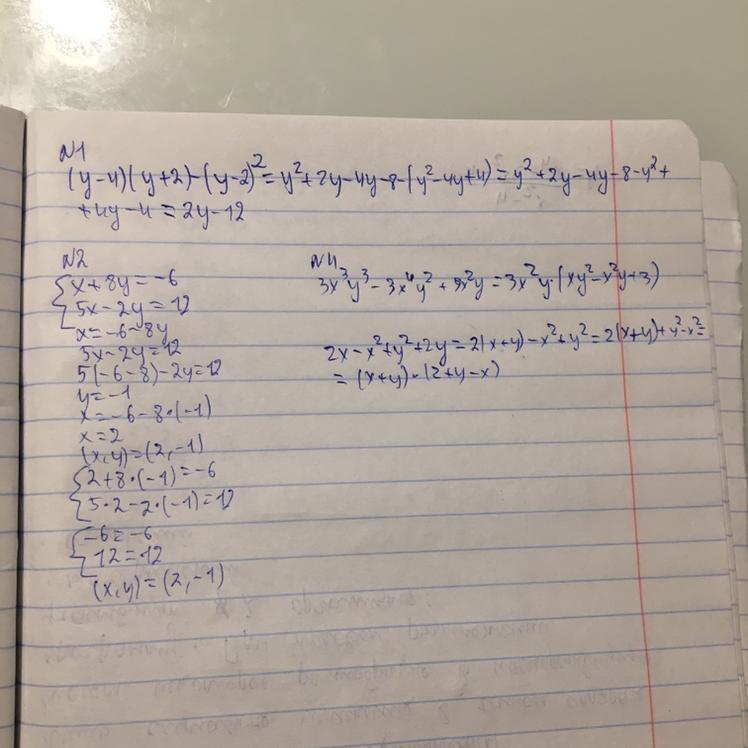 N1
(y-4)(y+2)-(y-2)²=y²+2y-4y-8-(y²-4y+4)=y²+2y-4y-8-y²+
+4y-4=2y-12
N2
{x+8y=-6
5x-2y=12
x=-6-8y
5x-2y=12
5(-6-8)-2y=12
y=-1
x=-6-8·(-1)
x=2
(x,y)=(2,-1)
{2+8·(-1)=-6
5·2-2·(-1)=12
{-6=-6
12=12
(x,y)=(2,-1)
N4
3x³y³-3x⁴y²+9x²y=3x²y·(xy²-x²y+3)
2x-x²+y²+2y=2(x+y)-x²+y²=2(x+y)+y²-x²=
=(x+y)·(2+y-x)